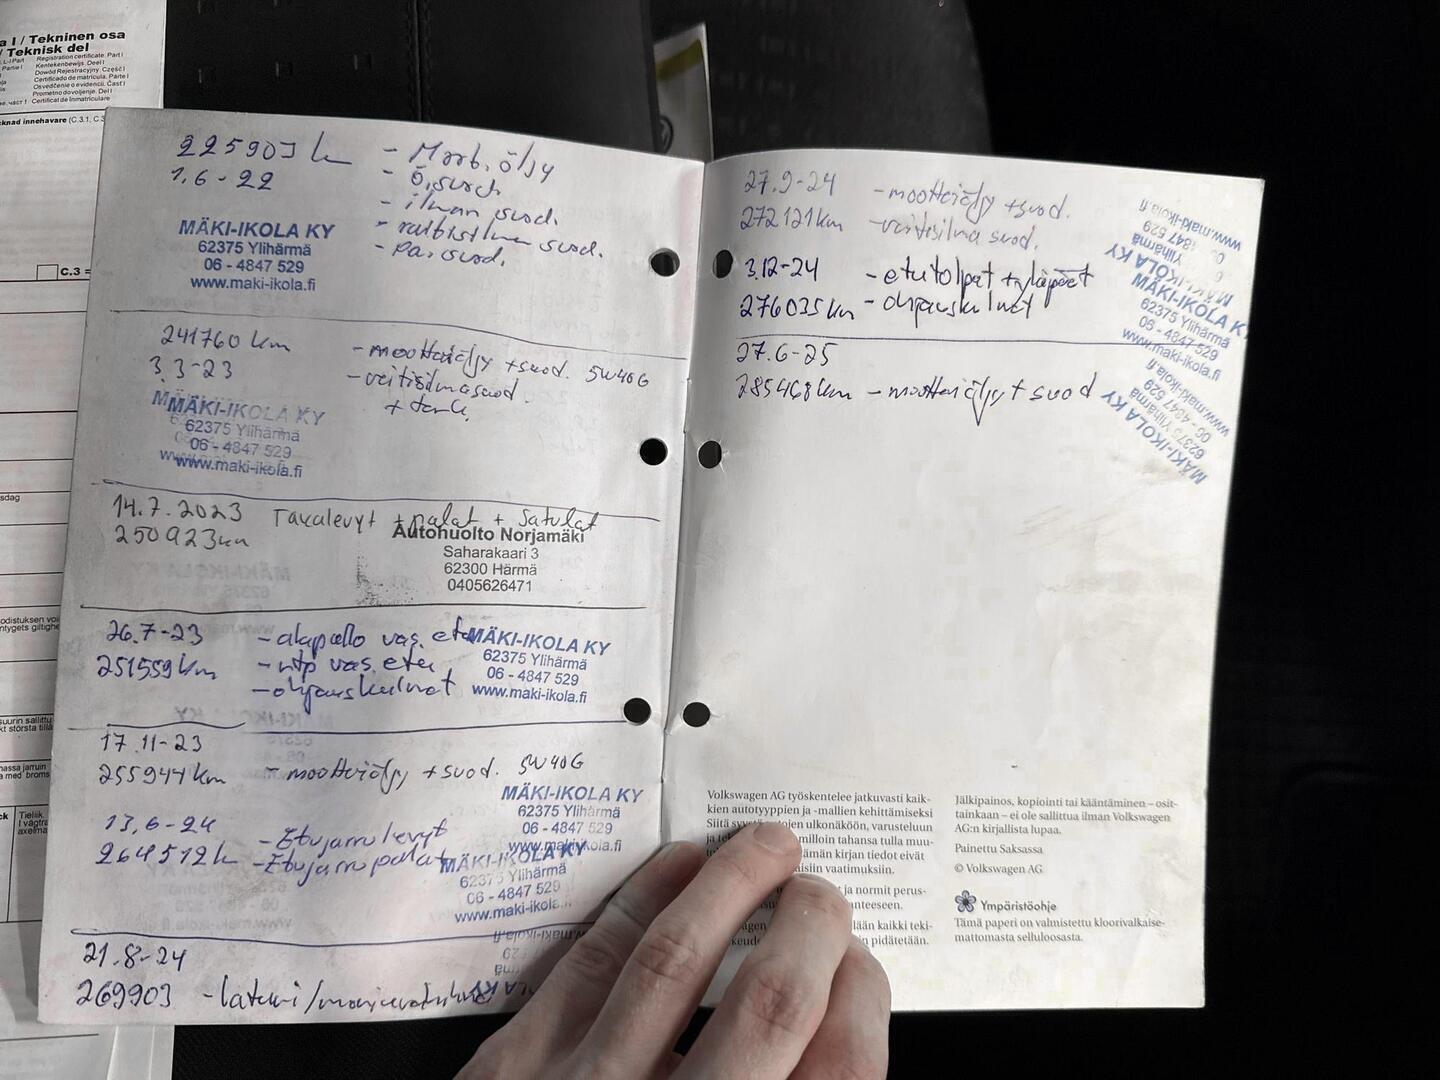 a I / Tekninen osa
/ Teknisk del
Registration certificate. Part I
Kentekenbewijs. Deel I
Dowód Rejestracyjny. Część I
Certificado de matrícula. Parte I
Osvedčenie o evidencii. Časť I
Prometno dovoljenje. Del I
Certificat de înmatriculare
cknad innehavare (C.3.1, C.3
C.3 =
225903 km - Moot. öljy
1.6-22 - ö.suod.
- ilman suod.
- raitisilma suod.
- pa. suod.
MÄKI-IKOLA KY
62375 Ylihärmä
06 - 4847 529
www.maki-ikola.fi
241760 km - moottoriöljy + suod. 5W40G
3.3-23 - raitisilmasuod.
MÄKI-IKOLA KY
62375 Ylihärmä
06 - 4847 529
www.maki-ikola.fi
14.7.2023 Takalevyt + palat + satulat
250923km
Autohuolto Norjamäki
Saharakaari 3
62300 Härmä
0405626471
26.7-23 - alapallo vas. etu
251559km - rtp vas. etu
- ohjauskulmat
MÄKI-IKOLA KY
62375 Ylihärmä
06 - 4847 529
www.maki-ikola.fi
17.11-23
255944 km - moottoriöljy + suod. 5W40G
MÄKI-IKOLA KY
62375 Ylihärmä
06 - 4847 529
www.maki-ikola.fi
13.6-24 - Etujarrulevyt
264512k - Etujarrupalat
MÄKI-IKOLA KY
62375 Ylihärmä
06 - 4847 529
www.maki-ikola.
21.8-24
269903 - laturi/
27.9-24 - moottoriöljy + suod.
272121km - raitisilma suod.
3.12-24 - etutolpat + yläpäät
276035km - ohjauskulmat
27.6-25
285468km - moottoriöljy + suod
www.maki-ikola.fi
4847 529
Ylihärmä
MÄKI-IKOLA KY
MÄKI-IKOLA K
62375 Ylihärmä
06 - 4847-529
www.maki-ikola.fi
www.maki-ikola.fi
06 - 4847 529
62375 Ylihärmä
MÄKI-IKOLA KY
Volkswagen AG työskentelee jatkuvasti kaik-
kien autotyyppien ja -mallien kehittämiseksi
Siitä ojen ulkonäköön, varusteluun
milloin tahansa tulla muu-
ämän kirjan tiedot eivät
aisiin vaatimuksiin.
t ja normit perus-
anteeseen.
lään kaikki teki-
n pidätetään.
Jälkipainos, kopiointi tai kääntäminen – osit-
tainkaan – ei ole sallittua ilman Volkswagen
AG:n kirjallista lupaa.
Painettu Saksassa
© Volkswagen AG
Ympäristöohje
Tämä paperi on valmistettu kloorivalkaise-
mattomasta selluloosasta.